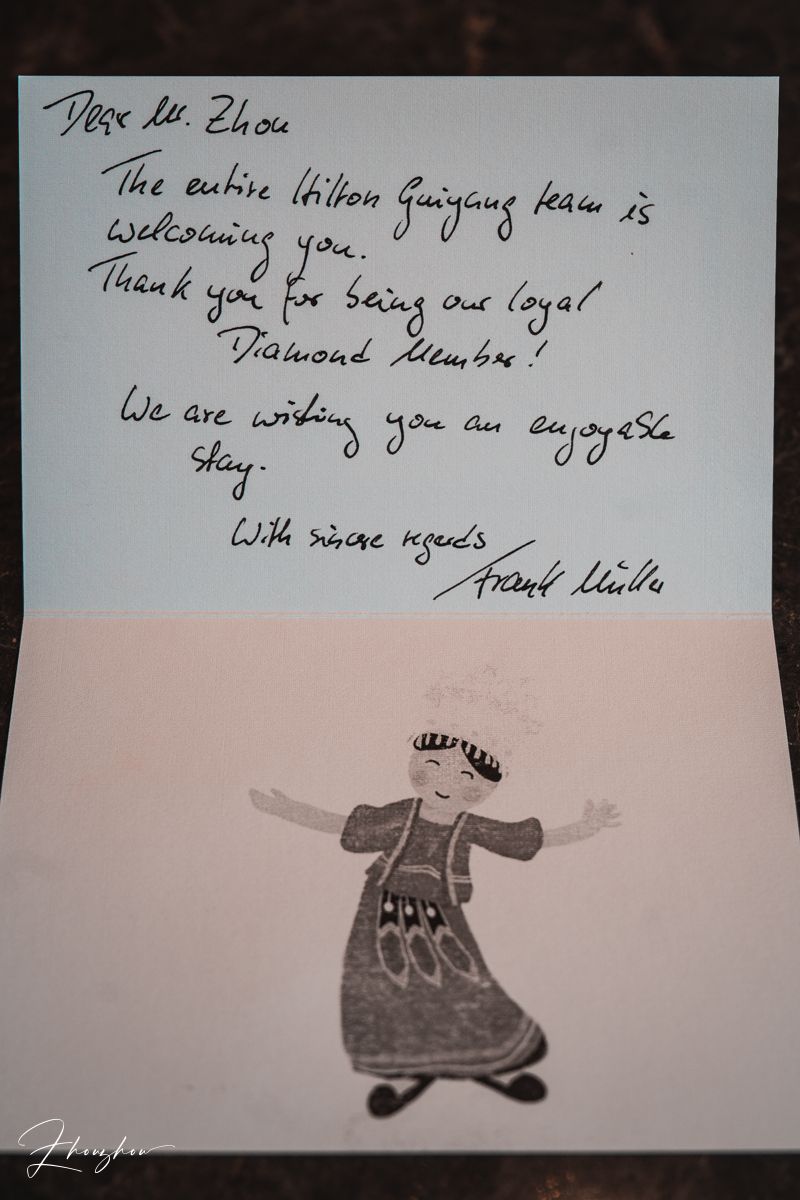 Dear Mr. Zhou
The entire Hilton Guiyang team is
welcoming you.
Thank you for being our loyal
Diamond Member!
We are wishing you an enjoyable
stay.
With sincere regards
Frank Müller
Zhouzhou